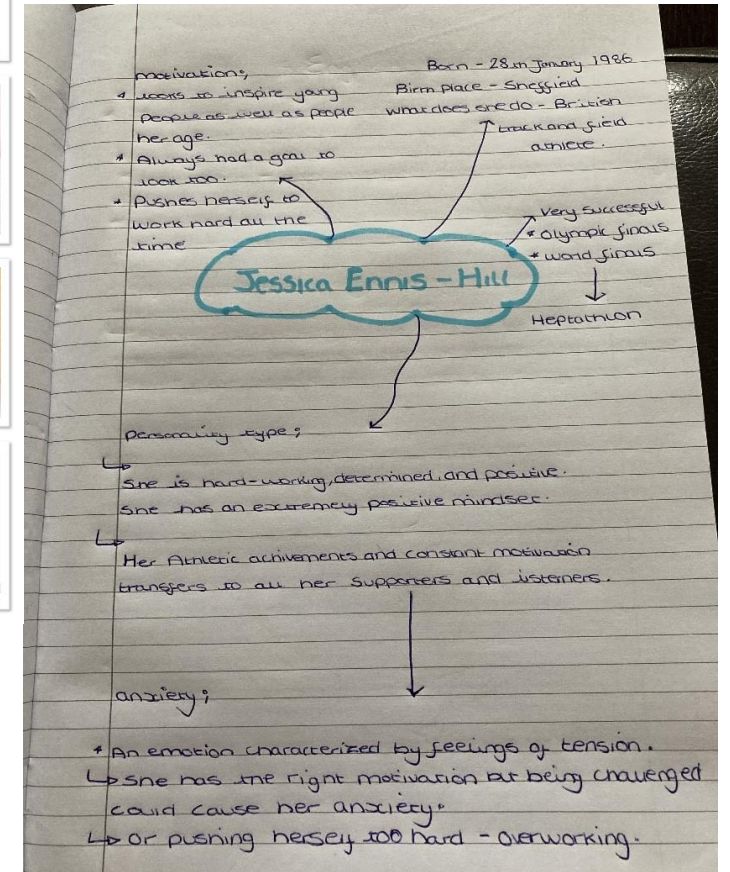 motivation;
* looks to inspire young
people as well as people
her age.
* Always had a goal to
look too.
* Pushes herself to
work hard all the
time
Born - 28th January 1986
Birth place - Sheffield
what does she do - British
track and field
athlete.
Very successful
* Olympic finals
* world finals
Heptathlon
Jessica Ennis - Hill
personality type;
She is hard-working, determined, and positive.
She has an extremely positive mindset.
Her Athletic achivements and constant motivation
transfers to all her supporters and listeners.
anxiety;
* An emotion characterized by feelings of tension.
She has the right motivation but being challenged
could cause her anxiety.
Or pushing herself too hard - overworking.